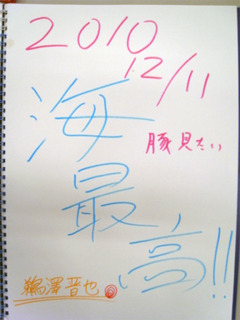 2010
12/11
海
豚見たい
最
高!!
鵜澤晋也